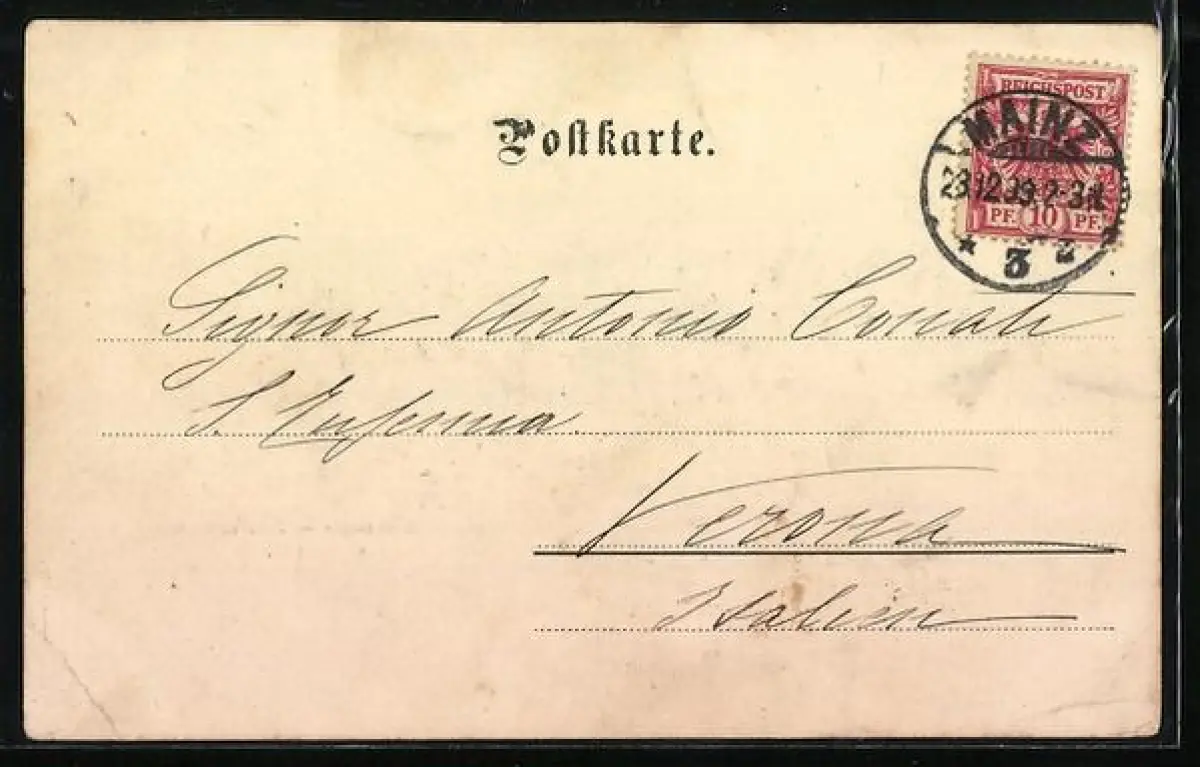 Postkarte.
REICHSPOST
MAINZ
23.12.99. 2-3N.
PF. 10 PF.
* 3 z *
Signor Antonio Conati
S. Eufemia.
Verona
Italien